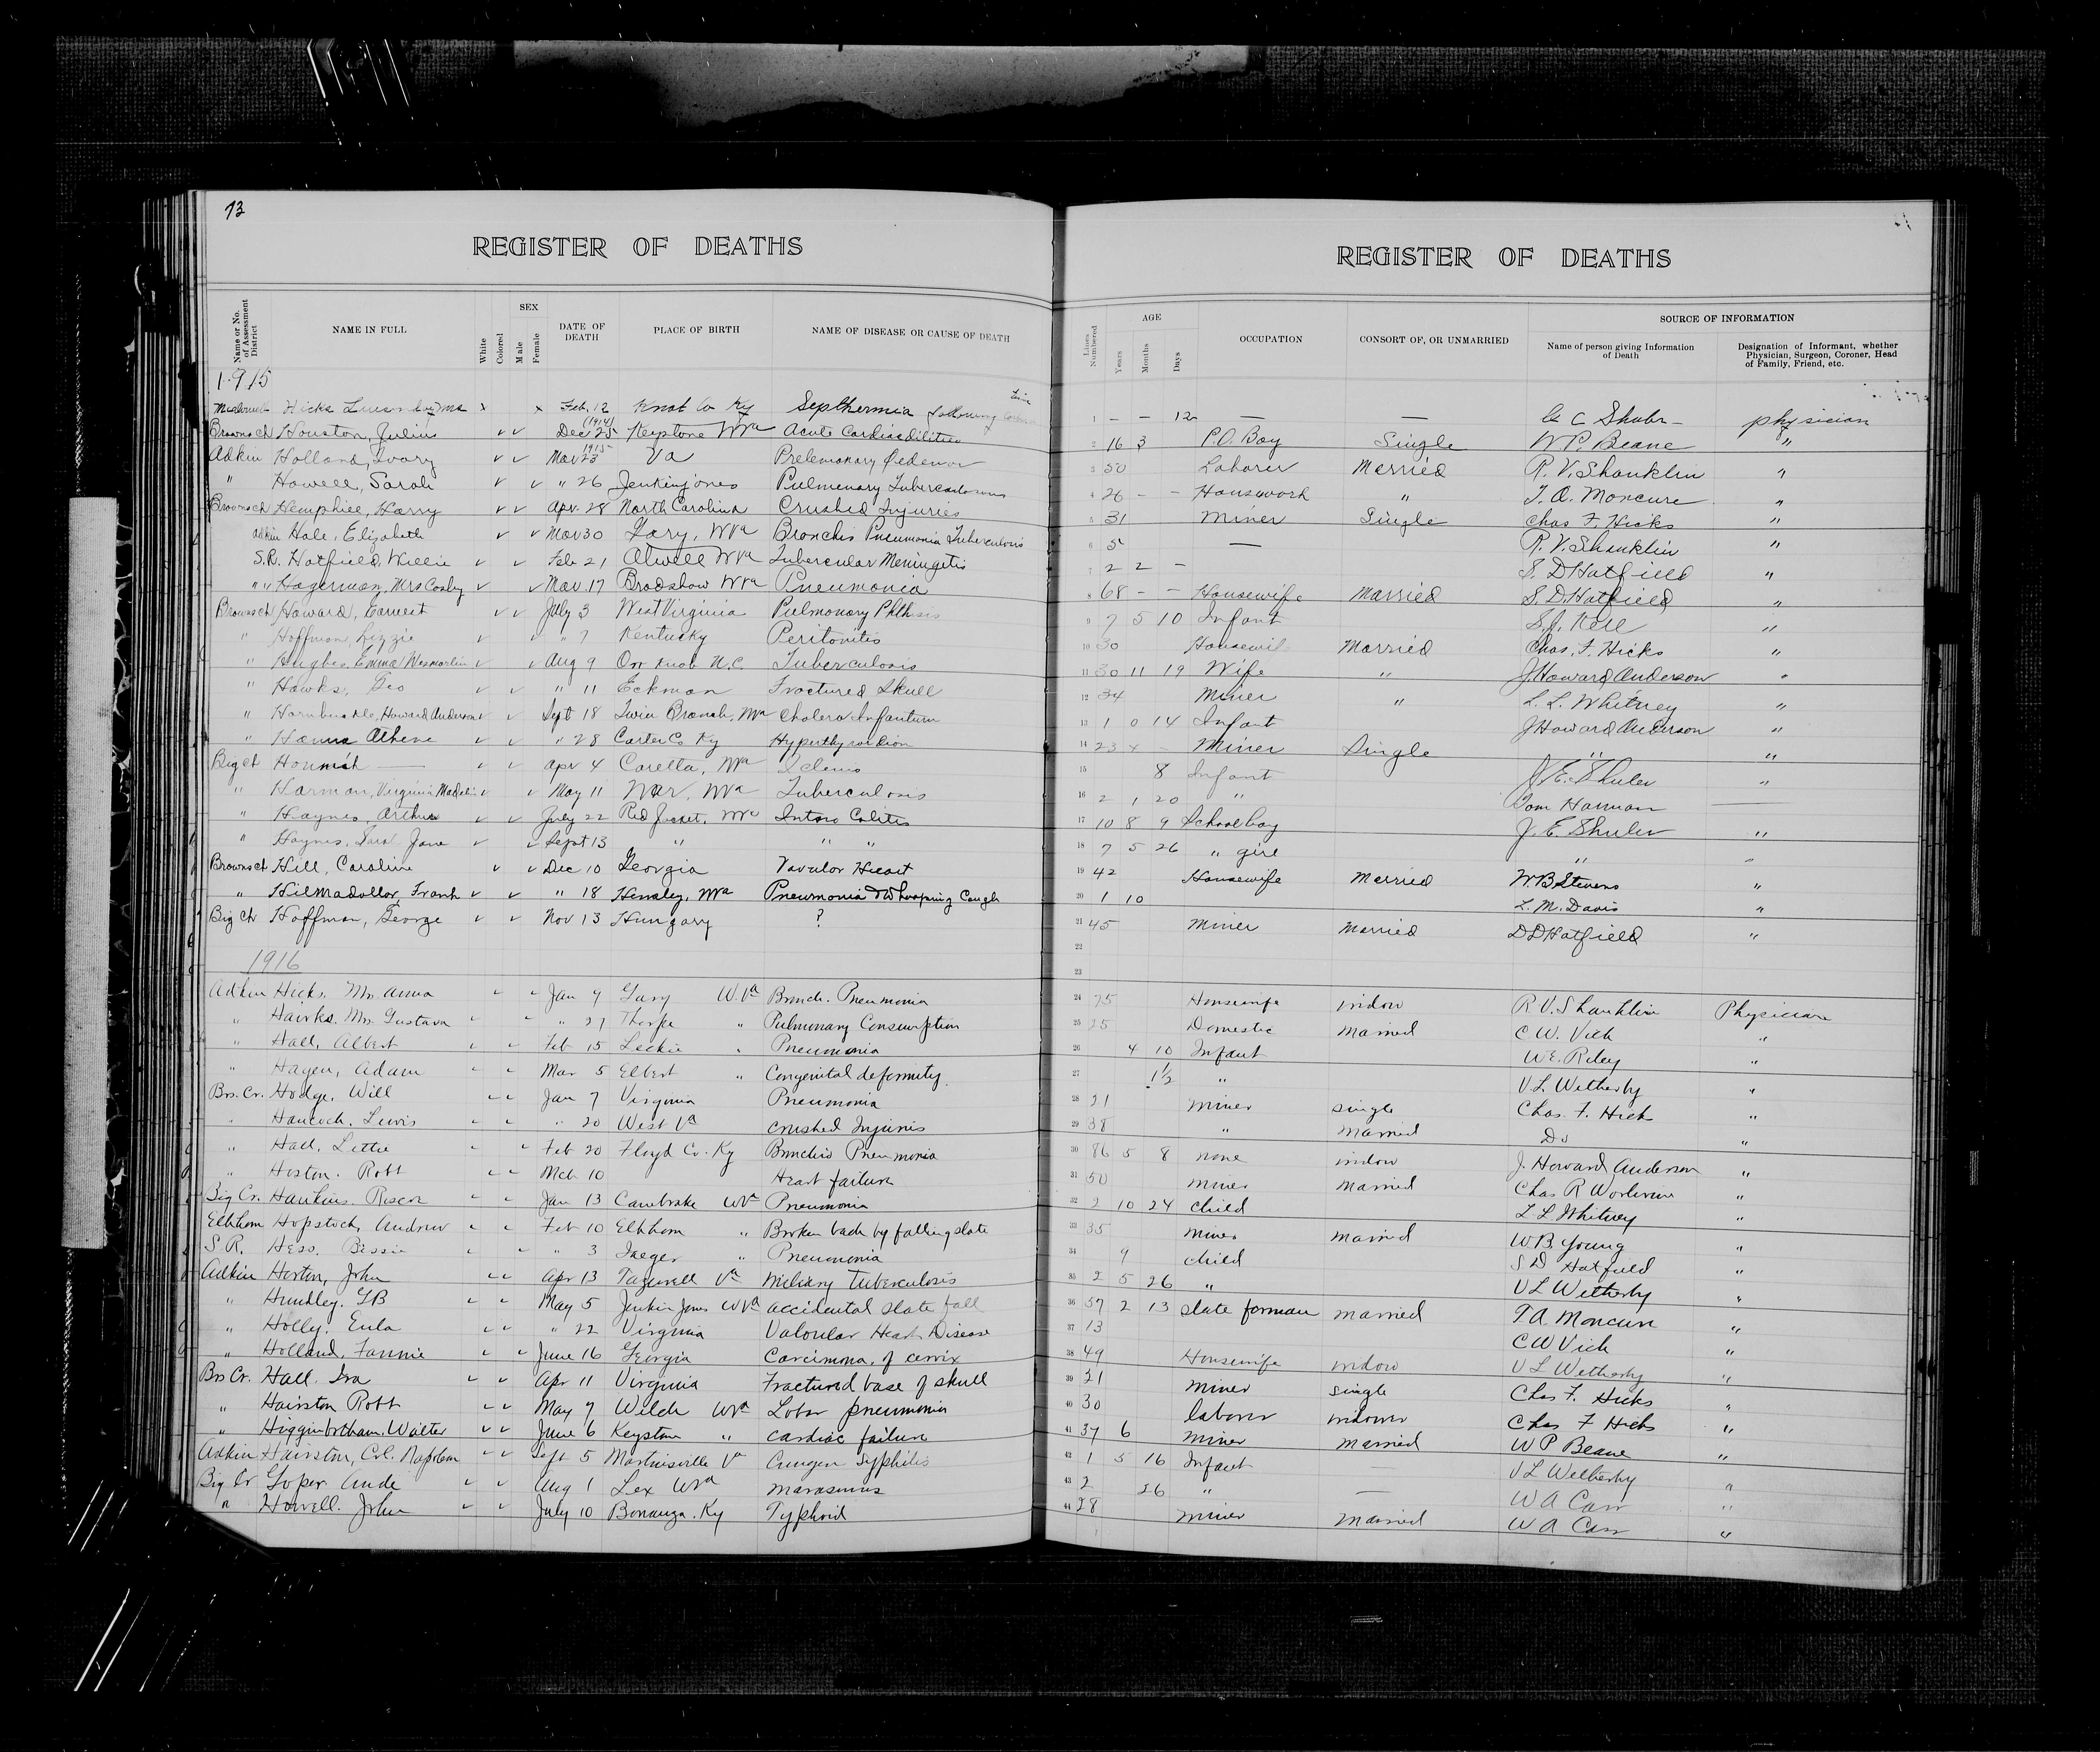 73
REGISTER OF DEATHS
Name or No. of Assessment District
NAME IN FULL
White
Colored
SEX
Male
Female
DATE OF DEATH
PLACE OF BIRTH
NAME OF DISEASE OR CAUSE OF DEATH
1915
Hicks x x Feb. 12 Knot Co Ky Septhermia following
Browns ch Houston, Julius ✓ ✓ Dec 25 (1914) Keystone WVa Acute Cardiac dilities
Adkin Holland, Ivory ✓ ✓ Mar 23 1915 Va
" Howell, Sarah ✓ ✓ " 26 Jenkinjones Pulmonary Tuberculosis
Browns ch Hemphill, Harry ✓ ✓ Apr. 28 North Carolina Crushed Injuries
Adkin Hale, Elizabeth ✓ ✓ Mar 30 Gary, WVa Bronchis Pneumonia Tuberculosis
S.R. Hatfield, Willie ✓ ✓ Feb 21 Atwell WVa Tubercular Meningitis
" " Hagerman, Mrs Cosby ✓ ✓ Mar. 17 Bradshaw WVa Pneumonia
Browns ch Howard, Earnest ✓ ✓ July 3 West Virginia Pulmonary Phthisis
" Hoffman, Lizzie ✓ ✓ " 7 Kentucky Peritonites
" Hughes, Emma ✓ ✓ Aug 9 Orr Knob N.C. Tuberculosis
" Hawks, Geo ✓ ✓ " 11 Eckman Fractured Skull
" Hornbuckle, Howard Anderson ✓ ✓ Sept 18 Twin Branch, WVa Cholera Infantum
" Hanna Athene ✓ ✓ " 28 Carter Co Ky
Big ch Hornish — ✓ ✓ Apr 4 Coretta, WVa
" Harman, Virginia ✓ ✓ May 11 War, WVa Tuberculosis
" Haynes, Arthur ✓ ✓ July 22 Red Jacket, WVa Intero Colitis
" Haynes, Jane ✓ ✓ Sept 13 " " "
Browns ch Hill, Caroline ✓ ✓ Dec 10 Georgia Vavular Heart
" Kilmadollar, Frank ✓ ✓ " 18 Hensley, WVa Pneumonia & Whooping Cough
Big ch Hoffman, George ✓ ✓ Nov 13 Hungary ?
1916
Adkin Hicks, Mrs. Anna ✓ ✓ Jan 9 Gary W.Va Bronch. Pneumonia
" Hawks, Mrs Gustava ✓ ✓ " 27 Thorpe " Pulmonary Consumption
" Hall, Albert ✓ ✓ Feb 15 Leckie " Pneumonia
" Hagen, Adam ✓ ✓ Mar 5 Elbert " Congenital deformity.
Brs. Cr. Hodge, Will ✓ ✓ Jan 7 Virginia Pneumonia
Hancock, Lewis ✓ ✓ " 20 West Va Crushed Injuries
" Hall, Lettie ✓ ✓ Feb 20 Floyd Co. Ky Bronchis Pneumonia
" Hoston. Robt ✓ ✓ Mch 10 Heart failure
Big Cr. Hankins, Roscoe ✓ ✓ Jan 13 Canebrake WVa Pneumonia
Elkhorn Hopstock, Andrew ✓ ✓ Feb 10 Elkhorn " Broken back by falling slate
S.R. Hess, Bessie ✓ ✓ " 3 Iaeger " Pneumonia
Adkin Horton, John ✓ ✓ Apr 13 Tazewell Va Miliary Tuberculosis
" Hundley. GB ✓ ✓ May 5 Jenkin Jones WVa accidental slate fall
" Holly. Eula ✓ ✓ " 22 Virginia Valvular Heart Disease
" Holland, Fannie ✓ ✓ June 16 Georgia Carcimona, of cervix
Brs Cr. Hall. Ira ✓ ✓ Apr 11 Virginia Fractured base of skull
" Hairston Robt ✓ ✓ May 7 Welch WVa Lobar pneumonia
" Higginbotham, Walter ✓ ✓ June 6 Keystone " Cardiac failure
Adkin Hairston, Col. Napoleon ✓ ✓ Sept 5 Martinsville Va Syphilis
Big Cr Goper Aude ✓ ✓ Aug 1 Lex WVa Marasmus
" Howell. John ✓ ✓ July 10 Bonanza. Ky Typhoid
REGISTER OF DEATHS
Lines Numbered
AGE
Years
Months
Days
OCCUPATION
CONSORT OF, OR UNMARRIED
SOURCE OF INFORMATION
Name of person giving Information of Death
Designation of Informant, whether Physician, Surgeon, Coroner, Head of Family, Friend, etc.
1 — — 12 — — physician
2 16 3 P.O. Boy Single W.P. Beane "
3 50 Laborer Married R. V. Shanklin "
4 26 - - Housework " T. A. Moncure "
5 31 Miner Single Chas F. Hicks "
6 5 — R. V. Shanklin "
7 2 2 - S. D Hatfield "
8 68 - - Housewife Married S. D. Hatfield "
9 7 5 10 Infant S.J. Kell "
10 30 Housewif Married Chas. F. Hicks "
11 30 11 19 Wife " J. Howard Anderson "
12 34 Miner " L. L. Whitney "
13 1 0 14 Infant J Howard Anderson "
14 23 Miner Single " "
15 8 Infant J. E. Shuler "
16 2 1 20 " Tom Harman —
17 10 8 9 School boy J. E. Shuler "
18 7 5 26 " girl " "
19 42 Housewife Married W. B Stevens "
20 1 10 L. M. Davis "
21 45 Miner Married D D Hatfield "
22
23
24 75 Housewife widow R V. Shanklin Physician
25 25 Domestic Married C W. Vick "
26 4 10 Infant W E. Riley "
27 1½ " V L. Wetherby "
28 21 Miner Single Chas. F. Hick "
29 38 " Married Do "
30 86 5 8 none widow J. Howard Anderson "
31 50 Miner Married Chas R "
32 2 10 24 child L L. Whitney "
33 35 Miner Married W B. Young "
34 9 child S D Hatfield "
35 2 5 26 " V L Wetherby "
36 57 2 13 slate forman married T A. Moncure "
37 13 C W Vick "
38 49 Housewife widow V L Wetherby "
39 21 Miner single Chas F. Hicks "
40 30 laborer widower Chas F Hicks "
41 37 6 Miner Married W P Beane "
42 1 5 16 Infant V L Wetherby "
43 2 26 " — W A Carr "
44 28 Miner Married W A Carr "